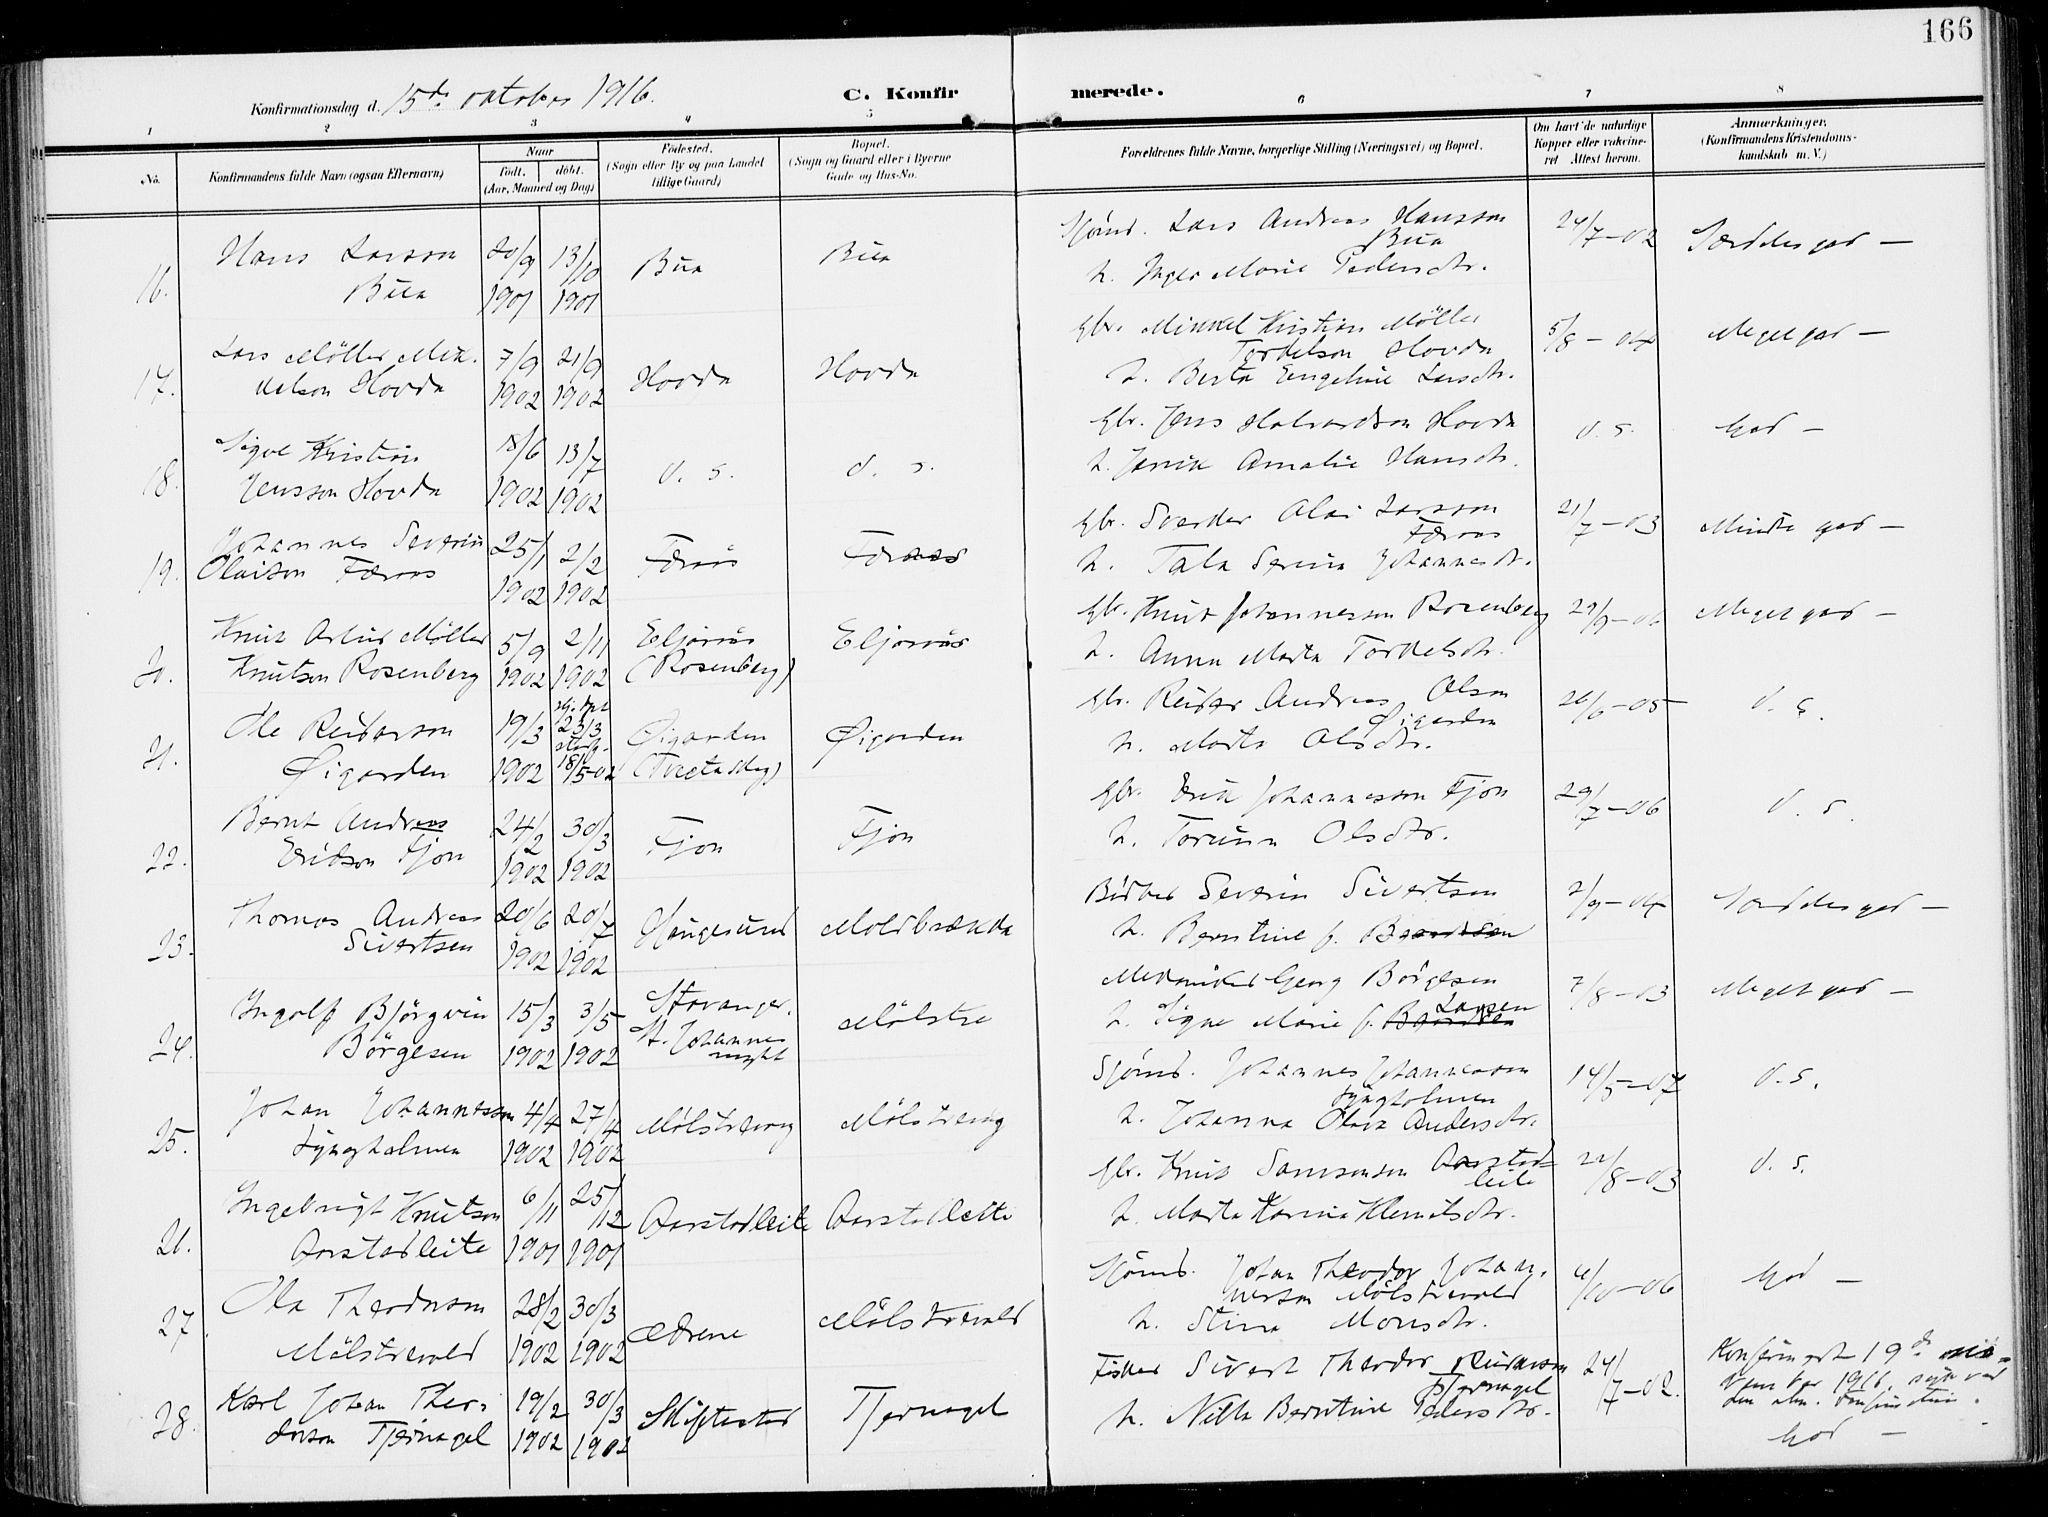 166
Konfirmationsdag d. 15de oktober 1916.
C. Konfirmerede.
1 2 3 4 5 6 7 8
No.
Konfirmandens fulde Navn (ogsaa Efternavn)
Naar
født. døbt.
(Aar, Maaned og Dag)
Fødested.
(Sogn eller By og paa Landet
tillige Gaard)
Bopæl.
(Sogn og Gaard eller i Byerne
Gade og Hus-No.
Forældrenes fulde Navne, borgerlige Stilling (Næringsvei) og Bopæl.
Om havt de naturlige
Kopper eller vakcine-
ret Attest herom.
Anmærkninger.
(Konfirmandens Kristendoms-
kundskab m. V.)
16. Hans Larson
Bua
20/9 1901
13/10 1901
Bua
Bua
Sjømd. Lars Andreas Hansson
Bua
h. Inger Marie Pedersdtr.
24/7-02
Særdeles god -
17. Lars Möller Mik-
kelson Hovda
7/9 1902
21/9 1902
Hovda
Hovda
Gbr. Mikkel Kristian Möller
Torkelson Hovda
h. Berta Engeline Larsdtr.
5/8-04
Meget god -
18. Sigve Kristian
Jensson Hovda
18/6 1902
13/7 1902
d. s.
d. s.
Gbr. Jens Halvardson Hovda
h. Amalie Hansdtr.
d. s.
God -
19. Johannes Severin
Olaison Færaas
25/1 1902
2/2 1902
Færaas
Færaas
Gbr. Sverder Olai Larsson
Færaas
h. Tala Serina Johannesdtr.
21/7-03
Mindre god -
20. Knut Artur Møller
Knutson Rosenberg
5/9 1902
2/11 1902
Eljarvås
(Rosenberg)
Eljarvås
Gbr. Knut Johannesson Rosenberg
h. Anna Marta Torkelsdtr.
Meget god -
21. Ole Reidarson
Øigarden
19/3 1902
hj. dpt
23/3
stadf.
18/5-02
Øigarden
Øigarden
Gbr. Reidar Andreas Olson
Øigarden
h. Marta Olsdtr.
26/6-05
d. s.
22. Bernt Andreas
Erikson Fjon
24/2 1902
30/3 1902
Fjon
Fjon
Gbr. Erik Johannesson Fjon
h. Torunn Olsdtr.
29/7-06
d. s.
23. Thomas Andreas
Sivertsen
20/6 1902
20/7 1902
Haugesund
Moldbrækka
Bødker Severin Sivertsen
h. Berntine f.
2/9-04
Særdeles god -
24. Ingolf Bjørgvin
Børgesen
15/3 1902
3/5 1902
Stavanger.
St. Johannes
mght
Mølstre
Mekaniker Georg Børgesen
h. Signe Marie f. Larsen
7/8-03
Meget god -
25. Johan Johannesson
Lyngholmen
4/4 1902
27/4 1902
Mølstrevåg
Mølstrevåg
Sjømd. Johannes Johannesson
Lyngholmen
h. Johanna Olava Andersdtr.
14/5-07
d. s.
26. Ingebrigt Knutson
Aarstadleite
6/11 1901
25/12 1901
Aarstadleite
Aarstadleite
Gbr. Knut Samsonson Aarstad-
leite
h. Marta Karina Klemitsdtr.
22/8-03
d. s.
27. Ola Theodorson
Mølstrevold
28/2 1902
30/3 1902
Mølstrevold
Sjømd. Johan Theodor Johan-
nesson Mølstrevold
h. Stina Monsdtr.
4/10-06
God -
28. Karl Johan Theo-
dorson Tjernagel
19/2 1902
30/3 1902
Skiftestad
Tjernagel
Fisker Sivert Theodor Reidarson
Tjernagel
h. Nilla Berntine Pedersdtr.
24/7-02.
Konfirmert 19de no-
vember 1916, sjuk ved
den alm. konfirmation.
God -